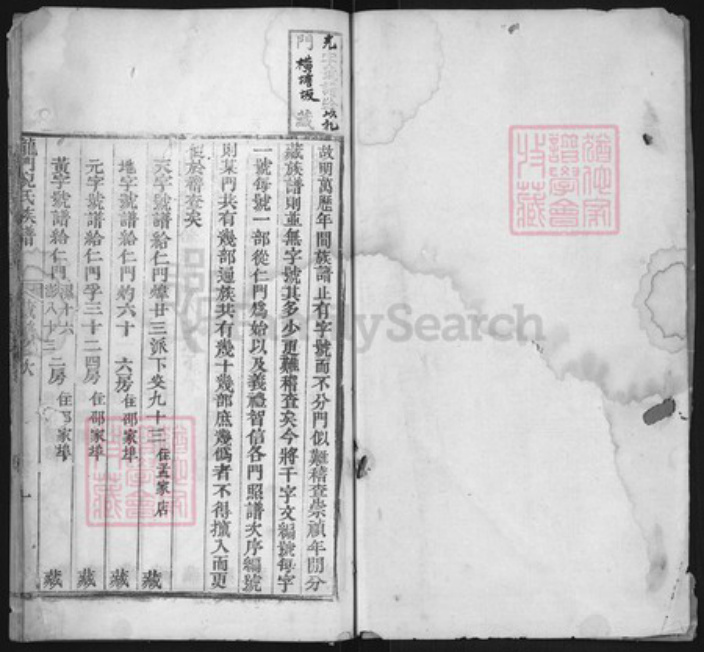 光字
門 藏
橫塘坂
故明萬歷年間族譜止有字號而不分門似難稽查崇禎年間分
藏族譜則並無字號其多少更難稽查矣今將千字文編號每字
一號每號一部從仁門爲始以及義禮智信各門照譜次序編號
則某門共有幾部通族共有幾十幾部庶幾僞者不得攙入而更
便於稽查矣
天字號譜給仁門 廿三派下安九十三 住孟家店 藏
地字號譜給仁門灼六十 六房住邵家埠 藏
元字號譜給仁門孚三十二四房 住邵家埠 藏
黃字號譜給仁門 十六 彭八十三 二房 住邵家埠 藏
龍門 氏族譜
FamilySearch
譜學會
收藏
譜學會
收藏